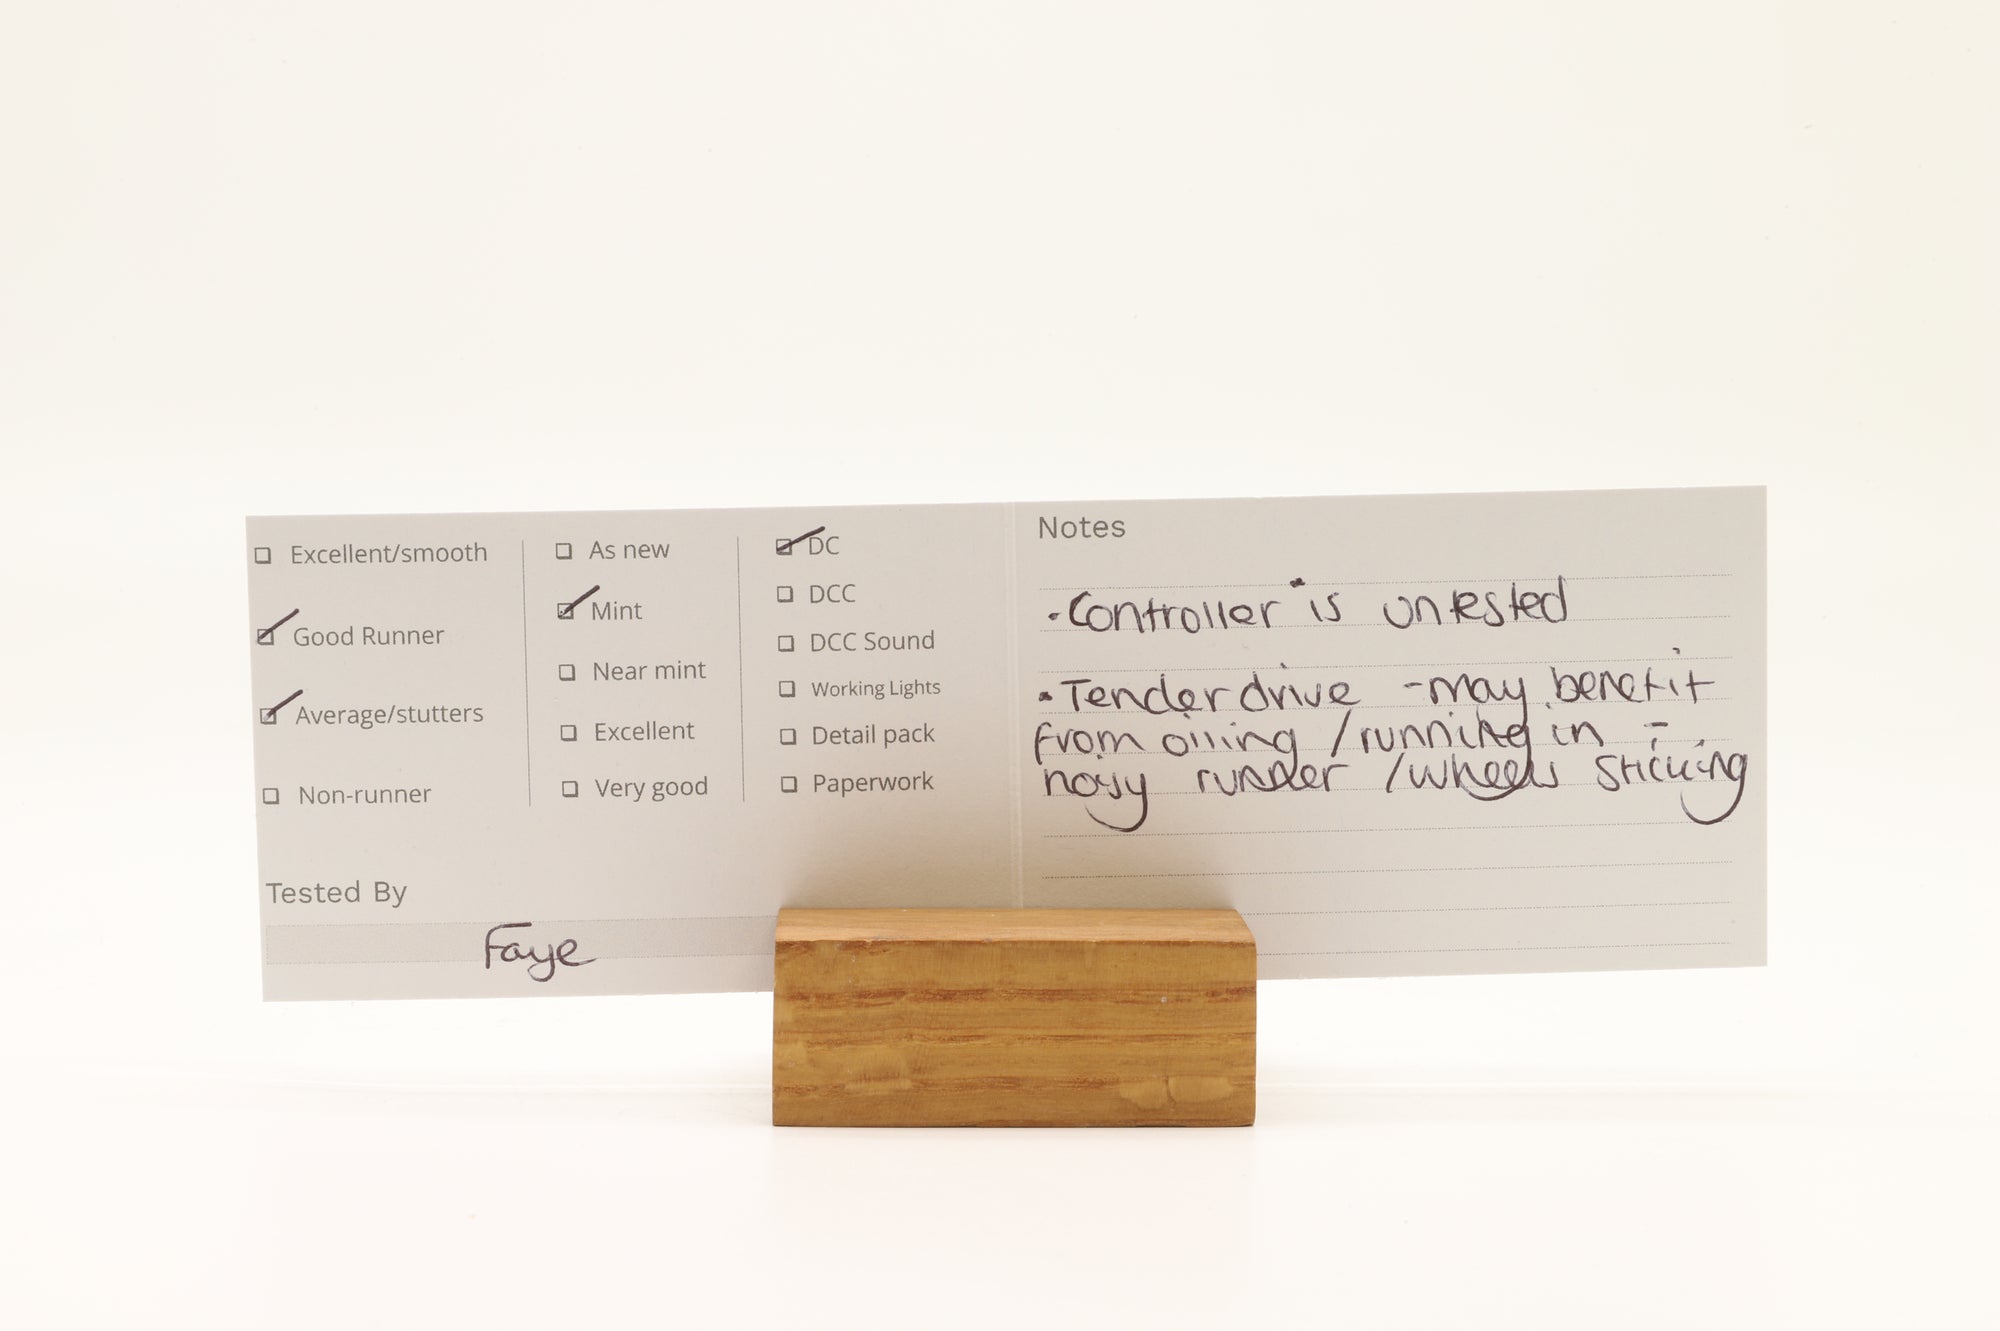 Excellent/smooth
Good Runner
Average/stutters
Non-runner
As new
Mint
Near mint
Excellent
Very good
DC
DCC
DCC Sound
Working Lights
Detail pack
Paperwork
Tested By
Faye
Notes
· Controller is untested
· Tender drive - may benefit
from oiling / running in -
noisy runner / wheels sticking